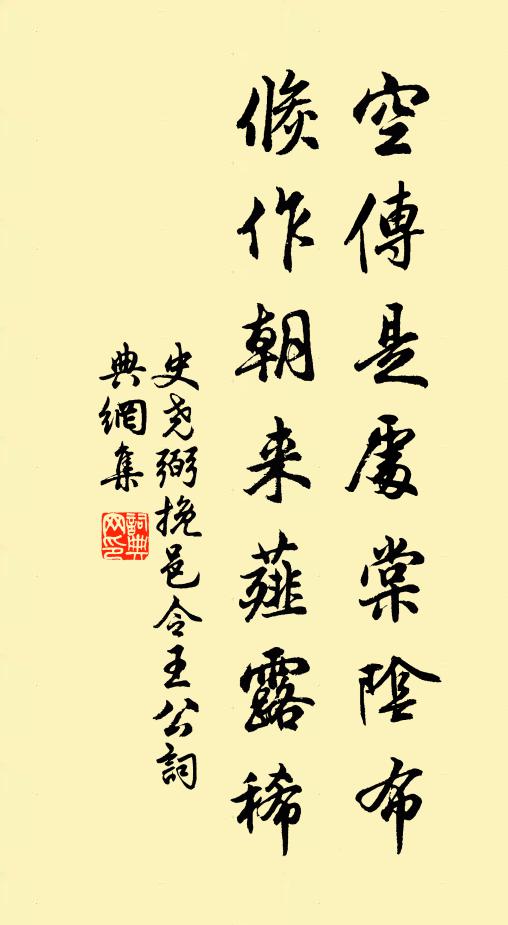 空傳是處棠陰布
倏作朝来薤露稀
史尧弼挽邑令王公詞
典網集
詞典網印